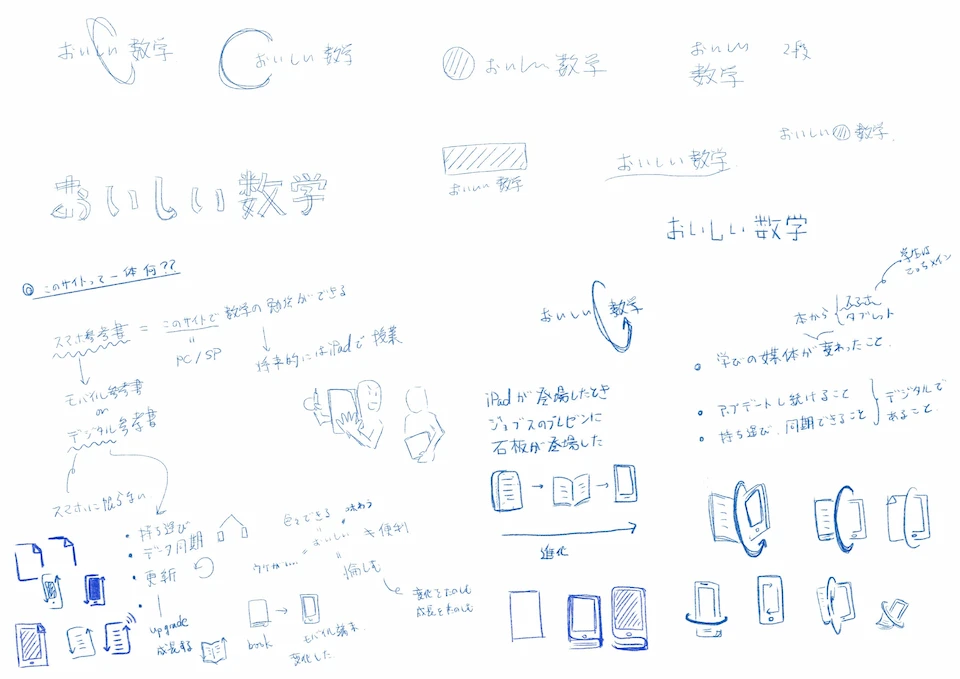 おいしい数学
おいしい数学
おいしい数学
おいしい
数学
2段
おいしい数学
おいしい数学
おいしい数学
おいしい数学
おいしい数学
◎このサイトって一体何??
スマホ参考書 = このサイトで数学の勉強ができる
PC/SP
将来的にはiPadで授業
モバイル参考書
or
デジタル参考書
スマホに限らない
・持ち運び
・データ同期
・更新
upgrade
成長する
色々できる
味わう
おいしい
便利
愉しむ
変化をたのしむ
成長をたのしむ
book
モバイル端末
変化した
おいしい数学
iPadが登場したとき
ジョブスのプレゼンに
石板が登場した
進化
学生は
こっちメイン
本から
スマホ
タブレット
学びの媒体が変わったこと。
アップデートし続けること
持ち運び、同期できること
デジタルで
あること。